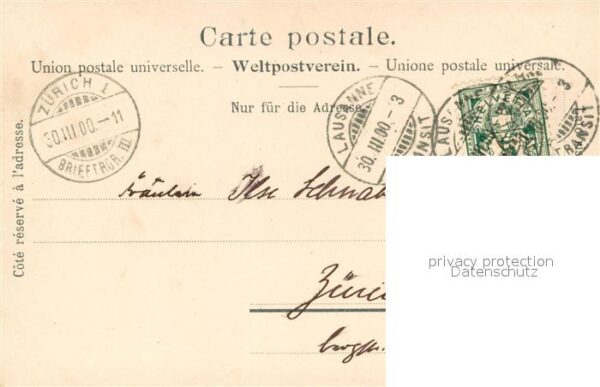 Carte postale.
Union postale universelle. – Weltpostverein. – Unione postale universale.
Nur für die Adresse.
Côté réservé à l'adresse.
ZÜRICH 1
30.III.00.–11
BRIEFTRGR. III
LAUSANNE
30.III.00.–3
TRANSIT
LAUSANNE
–3
TRANSIT
Fräulein Ilse Schwab
Züri
bergstr.
privacy protection
Datenschutz